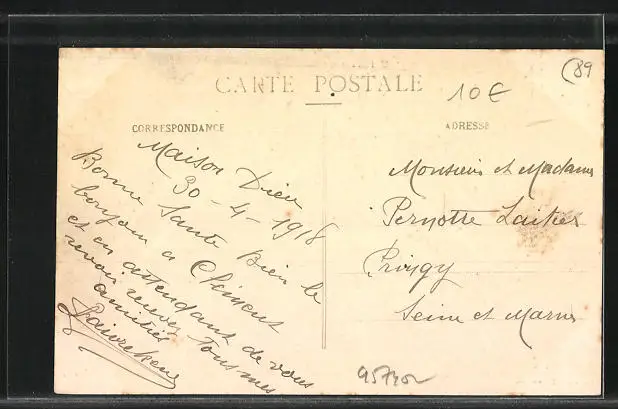 CARTE POSTALE
10€
(89
CORRESPONDANCE
ADRESSE
Maison Dieu
30-4-1918
Bonne Santé Bien le
bonjour a Clément
et en attendant de vous
revoir recevez tous mes
amitiés
Monsieur et Madame
Pernotte Laitier
Seine et Marne